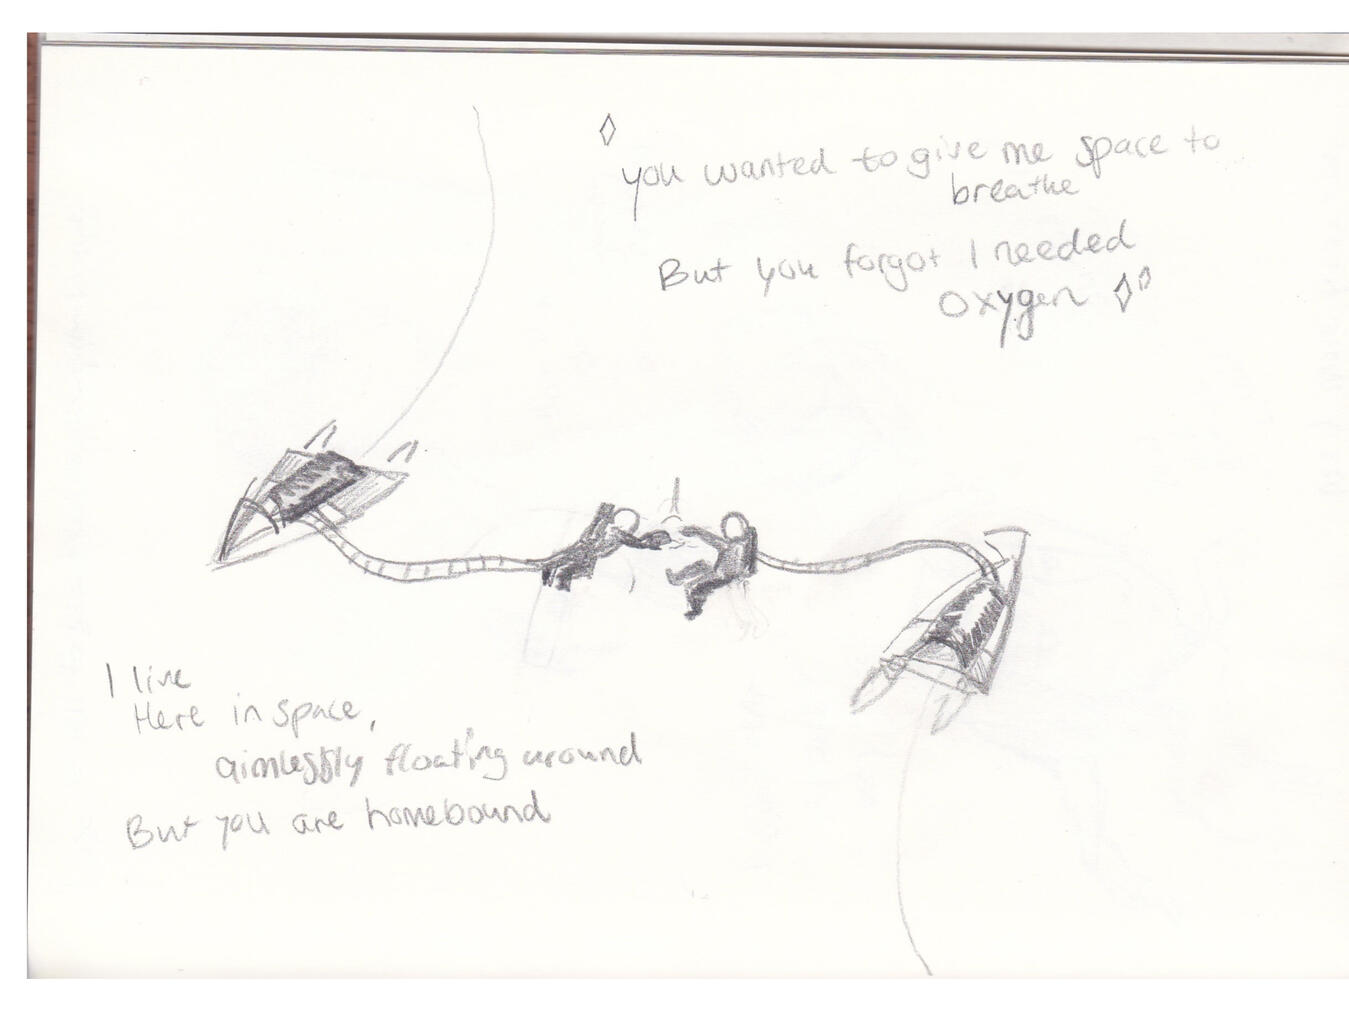 you wanted to give me space to
breathe
But you forgot I needed
oxygen
I live
Here in space,
aimlessly floating around
But you are homebound